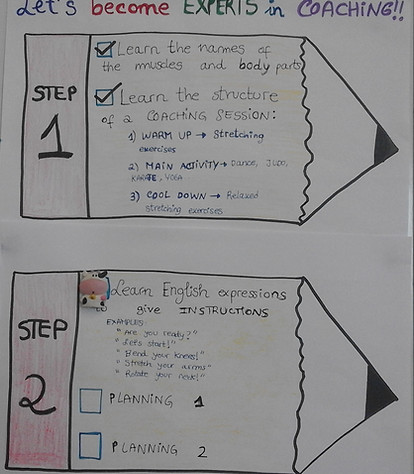 Let's become EXPERTS in COACHING!!
STEP
1
Learn the names of
the muscles and body parts
Learn the structure
of a COACHING SESSION:
1) WARM UP → Stretching
exercises
2) MAIN ACTIVITY → Dance, JUDO,
KARATE, YOGA
3) COOL DOWN → Relaxed
stretching exercises
STEP
2
Learn English expressions
to give INSTRUCTIONS
EXAMPLES:
"Are you ready?"
"Let's start!"
"Bend your knees!"
"Stretch your arms"
"Rotate your neck!"
PLANNING 1
PLANNING 2